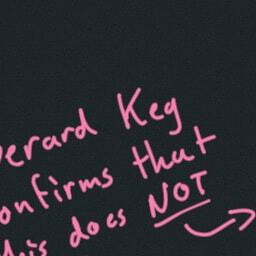 erard Keg
onfirms that
his does NOT